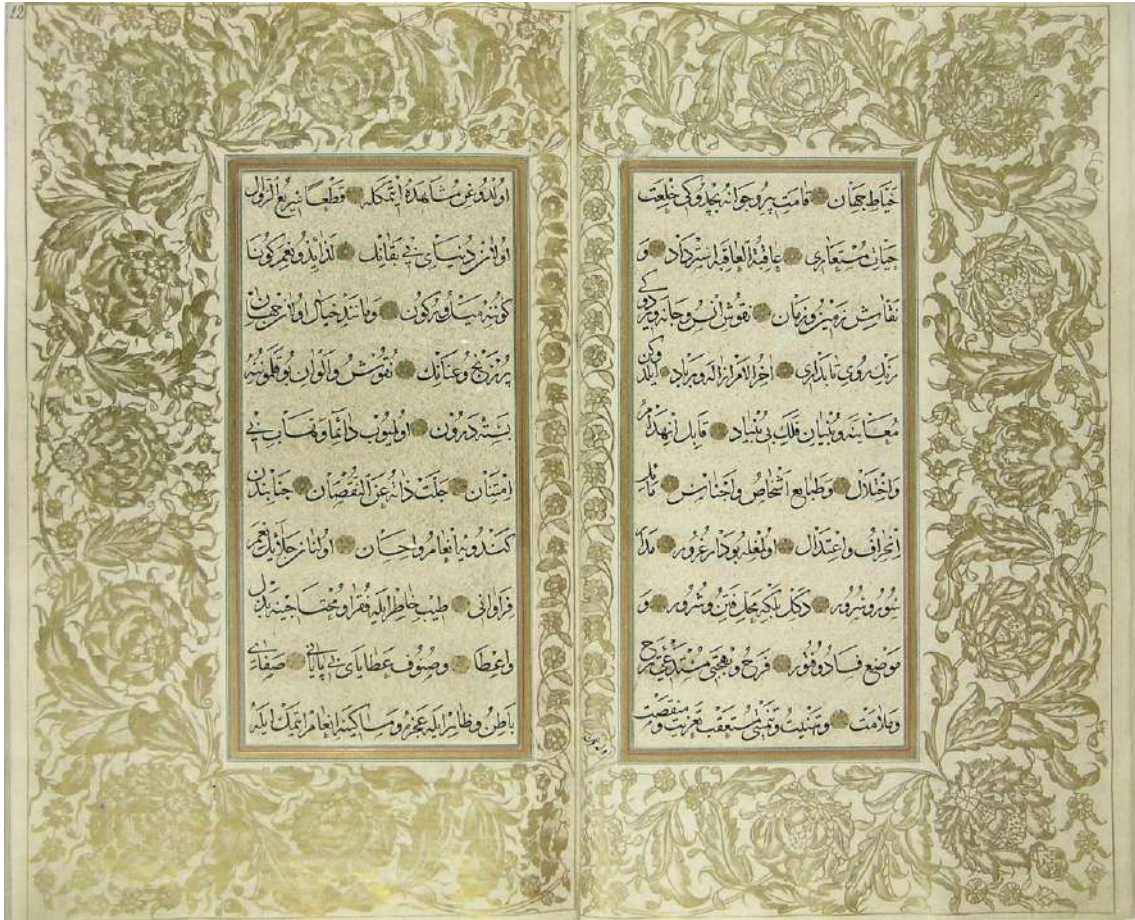 خیاط جهان قامت پیر و جوانه بچدوکی خلعت
حیات مستعاری عاقبة العاقبه استرداد و
نقاش زمین و زمان نقوش انس و جانه ویردوکی
رنك روی تابداری اخر الامر ازاله و برباد ایتدوکن
معاینه و بنیان فلك بی بنیاد قابل انهدام
واختلال وطبایع اشخاص واجناس مائل
انحراف واعتدال اولمغله بو دار غرور مدار
سور و سرور دکل بلکه محل فتن و شرور و
موضع فساد وفتور فرح و بهجتی مستدعی ترح
وملامت وتهنیت و تمنیتی مستعقب تعزیت ومنقصت
اولدوغن مشاهده ایتمکله قطعا سریع الزوال
اولان دنیای بی بقانك لذائذ و نعم کونا
کونه میل و رکون ومانند خیال اولان جهان
پر رنج و عنانك نقوش والوان بوقلمونه
بسته درون اولمیوب دائما وتهاب بی
امتنان جلت ذاته عن النقصان جنابندن
کندویه انعام واحسان اولنان جلائل نعم
فراوانی طیب خاطر ایله فقرا ومحتاجینه بذل
واعطا وصنوف عطایای بی پایانی صفای
باطن وظاهر ایله عجزه ومساکینه انعام ایتمك ایله
12